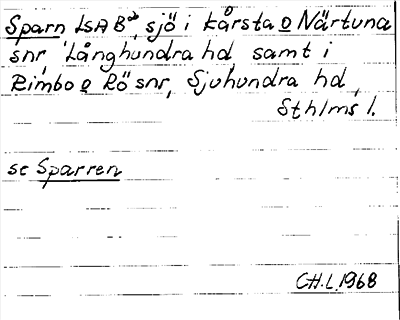 Sparn LSA B², sjö i Kårsta o Närtuna
snr, Långhundra hd, samt i
Rimbo o Rö snr, Sjuhundra hd,
Sthlms l.
se Sparren
CH.L. 1968